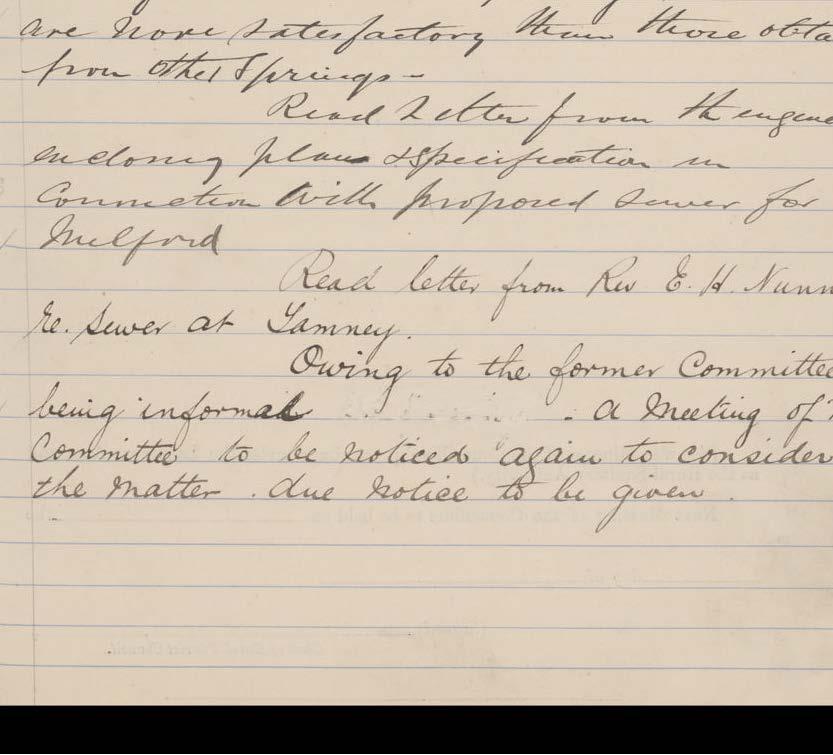 are more satisfactory than those obta
from other Springs -
Read Letter from th engine
enclosing plans & Specification in
Connection With proposed Sewer for
Milford
Read letter from Rev E. H. Nunn
re. Sewer at Tamney.
Owing to the former Committee
being informal - a Meeting of
Committee to be noticed again to consider
the Matter . due notice to be given .